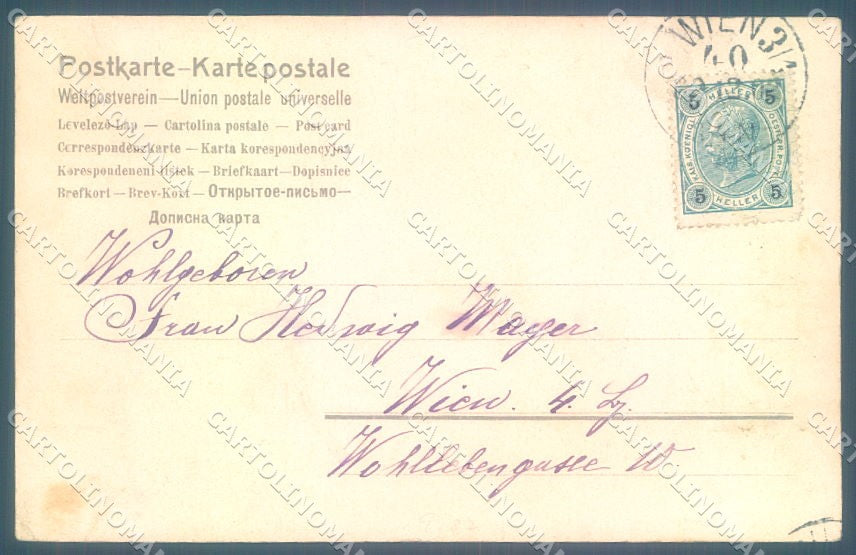 Postkarte—Karte postale
Weltpostverein—Union postale universelle
Levelező-Lap — Cartolina postale — Post card
Correspondenzkarte — Karta korespondencyjna
Korespondencni listek — Briefkaart—Dopisnice
Brefkort — Brev-Kort — Открытое-письмо—
Дописна карта
WIEN 3/1
40
5 HELLER 5
KAIS. KOENIGL. OESTERR. POST
5 HELLER 5
Wohlgeboren
Frau Hedwig Mayer
Wien. 4. Bz.
Wohllebengasse
CARTOLINOMANIA